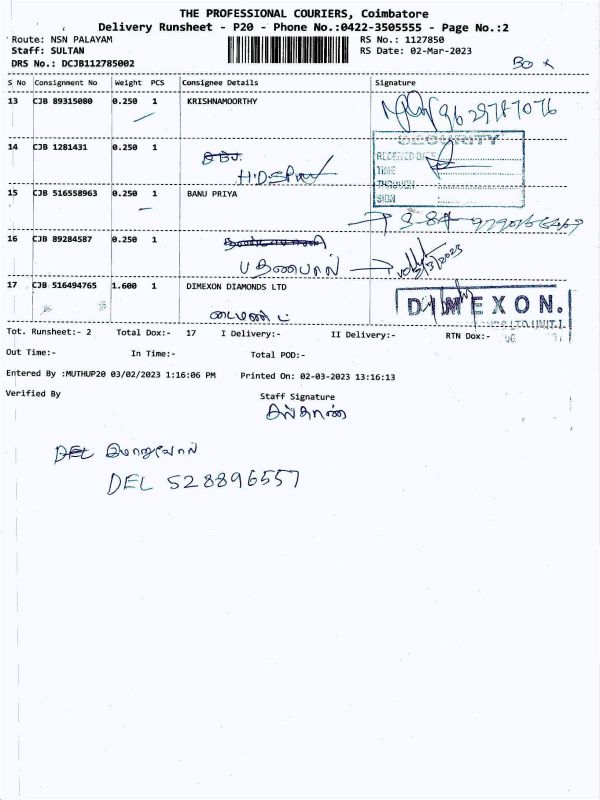 THE PROFESSIONAL COURIERS, Coimbatore
Delivery Runsheet - P20 - Phone No.:0422-3505555 - Page No.:2
Route: NSN PALAYAM RS No.: 1127850
Staff: SULTAN RS Date: 02-Mar-2023
DRS No.: DCJB112785002 BOX
S No Consignment No Weight PCS Consignee Details Signature
13 CJB 89315080 0.250 1 KRISHNAMOORTHY
14 CJB 1281431 0.250 1
SECURITY
RECEIVED DATE
TIME
THROUGH
SIGN
15 CJB 516558963 0.250 1 BANU PRIYA
16 CJB 89284587 0.250 1
17 CJB 516494765 1.600 1 DIMEXON DIAMONDS LTD
DIMEXON.
Tot. Runsheet:- 2 Total Dox:- 17 I Delivery:- II Delivery:- RTN Dox:-
Out Time:- In Time:- Total POD:-
Entered By :MUTHUP20 03/02/2023 1:16:06 PM Printed On: 02-03-2023 13:16:13
Verified By Staff Signature
சுல்தான்
DEL
DEL 528896557